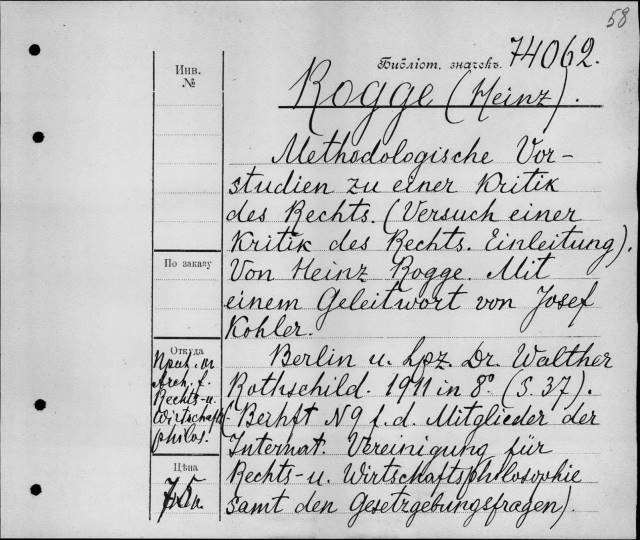 58
Библіот. значекъ. 74062.
Инв.
№
Rogge (Heinz).
Methodologische Vor-
studien zu einer Kritik
des Rechts. (Versuch einer
Kritik des Rechts. Einleitung).
По заказу
Von Heinz Rogge. Mit
einem Geleitwort von Josef
Kohler.
Откуда
Arch. f.
Rechts- u.
Wirtschafts-
philos.
Berlin u. Lpz. Dr. Walther
Rothschild. 1911 in 8° (S. 37).
(Berhft N 9 f. d. Mitglieder der
Internat. Vereinigung für
Rechts- u. Wirtschaftsphilosophie
samt den Gesetzgebungsfragen).
Цѣна